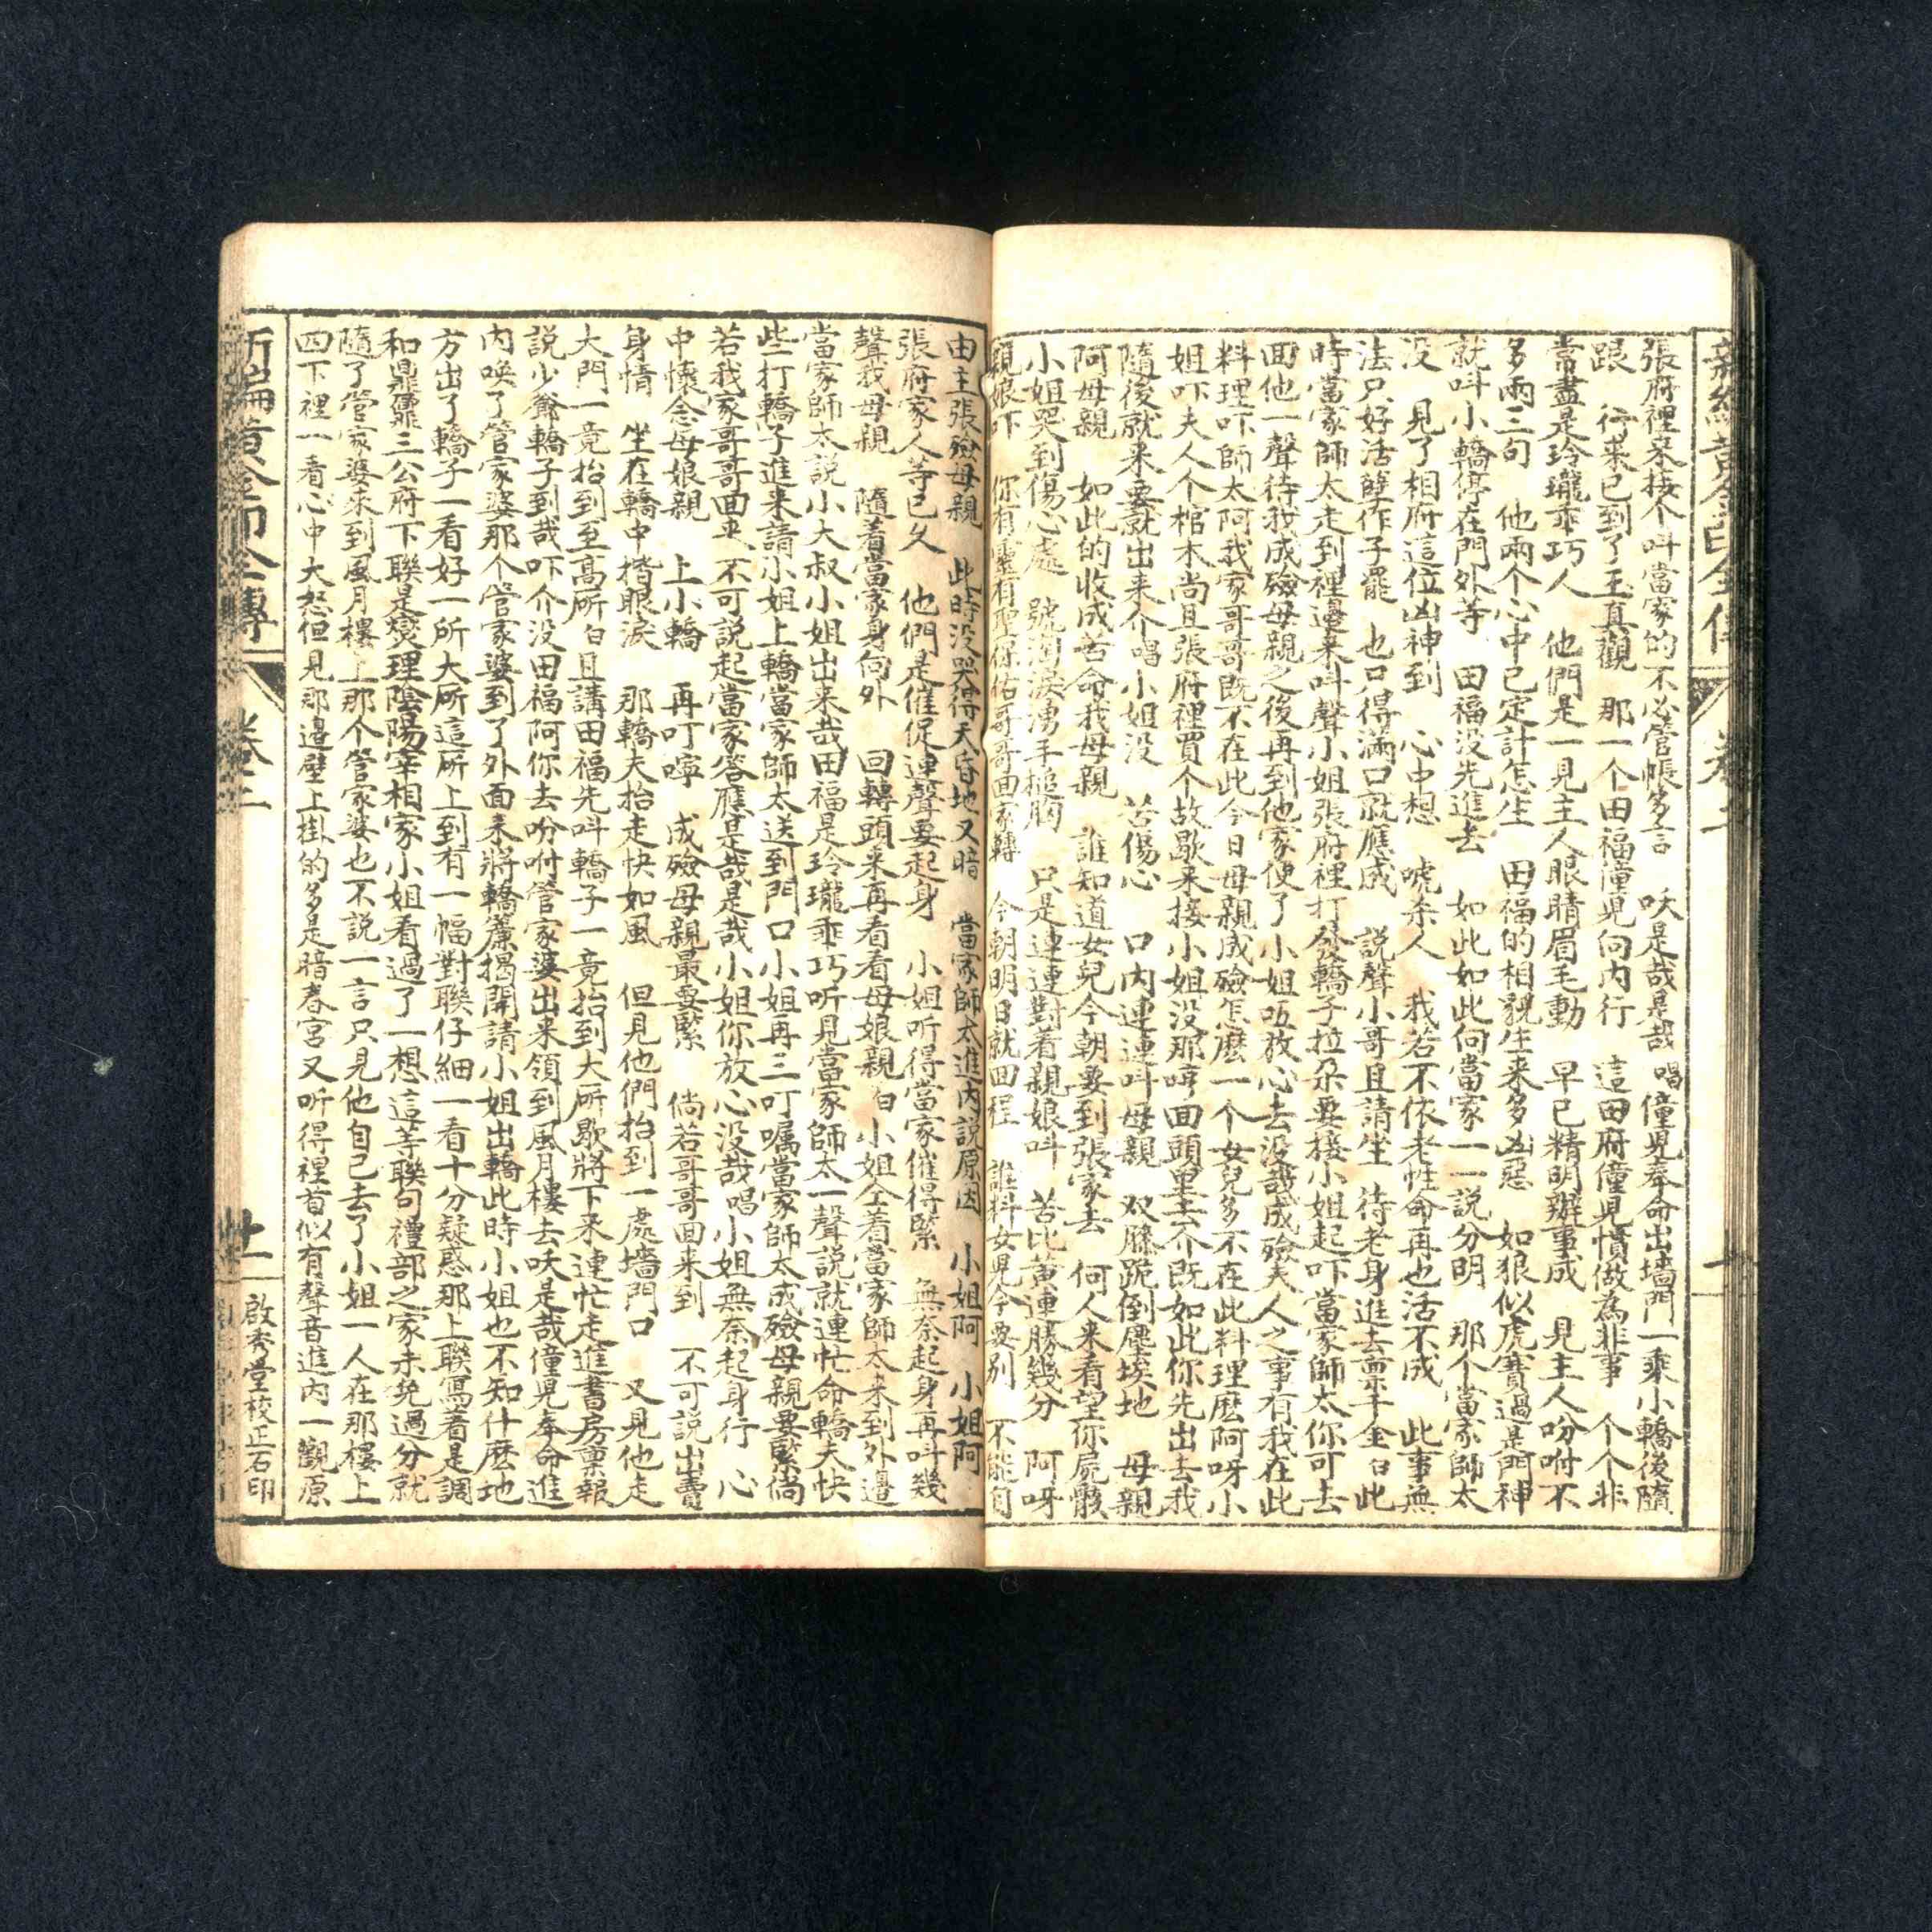 新編黃金印全傳 卷二
張府裡來接个叫當家的不必管帳多言 呔是哉是哉 唱 僮兒奉命出墻門 一乘小轎後隨
跟 行來已到了玉真觀 那一个田福僮兒向內行 這田府僮兒慣做為非事 个个非
常盡是玲瓏乖巧人 他們是一見主人眼睛眉毛動 早已精明辦事成 見主人吩咐不
多兩三句 他兩个心中已定計怎生 田福的相貌生來多凶惡 如狼似虎賽過是門神
就叫小轎停在門外等 田福没先進去 如此如此向當家一一說分明 那个當家師太
没 見了相府這位凶神到 心中想 唬杀人 我若不依老性命再也活不成 此事無
法只好活孽作子罷 也只得滿口就應成 說聲小哥且請坐 待老身進去禀千金 白 此
時當家師太走到裡邊来叫聲小姐張府裡打發轎子拉朶要接小姐起吓當家師太你可去
回他一聲待我成殮母親之後再到他家便了小姐呒放心去没哉成殮夫人之事有我在此
料理吓師太阿我家哥哥既不在此今日母親成殮怎麽一个女兒多不在此料理麽阿呀小
姐吓夫人个棺木尚且張府裡買个故歇来接小姐没那哼回頭里去介既如此你先出去我
隨後就来要就出来个唱小姐没 苦傷心 口内連連叫母親 双膝跪倒塵埃地 母親
阿母親 如此的收成苦命我母親 誰知道女兒今朝要到張家去 何人来看望你屍骸
小姐哭到傷心處 號淘淚湧手搥胸 只是連連對着親娘叫 苦比黄連勝幾分 阿呀
親娘吓 你有靈有聖保佑哥哥回家轉 今朝明日就回程 誰料女兒今要别 不能自
由主張殮母親 此時没哭得天昏地又暗 當家師太進内說原因 小姐阿 小姐阿
張府家人等已久 他們是催促連聲要起身 小姐听得當家催得緊 無奈起身再叫幾
聲我母親 隨着當家身向外 回轉頭来再看看母娘親 白 小姐全着當家師太来到外邊
當家師太說小大叔小姐出来哉田福是玲瓏乖巧听見當家師太一聲說就連忙命轎夫快
些打轎子進来請小姐上轎當家師太送到門口小姐再三叮嘱當家師太成殮母親要緊倘
若我家哥哥回来不可說起當家答應是哉是哉小姐你放心没哉唱小姐無奈起身行 心
中懷念母娘親 上小轎 再叮嚀 成殮母親最要緊 倘若哥哥回来到 不可說出賣
身情 坐在轎中揩眼淚 那轎夫抬走快如風 但見他們抬到一處墻門口 又見他走
大門一竟抬到至高所白且講田福先叫轎子一竟抬到大所歇將下来連忙走進書房禀報
說少爺轎子到哉吓介没田福阿你去吩咐管家婆出来領到風月樓去呔是哉僮兒奉命進
内唤了管家婆那个管家婆到了外面来將轎簾揭開請小姐出轎此時小姐也不知什麽地
方出了轎子一看好一所大所這所上到有一幅對聯仔細一看十分疑惑那上聯寫着是調
和鼎鼐三公府下聯是燮理陰陽宰相家小姐看過了一想這等聯句禮部之家未免過分就
隨了管家婆来到風月樓上那个管家婆也不說一言只見他自己去了小姐一人在那樓上
四下裡一看心中大怒但見那邊壁上掛的多是暗春宫又听得裡首似有聲音進内一觀原
新編黃金印全傳 卷二 廿一 啟秀堂校正石印